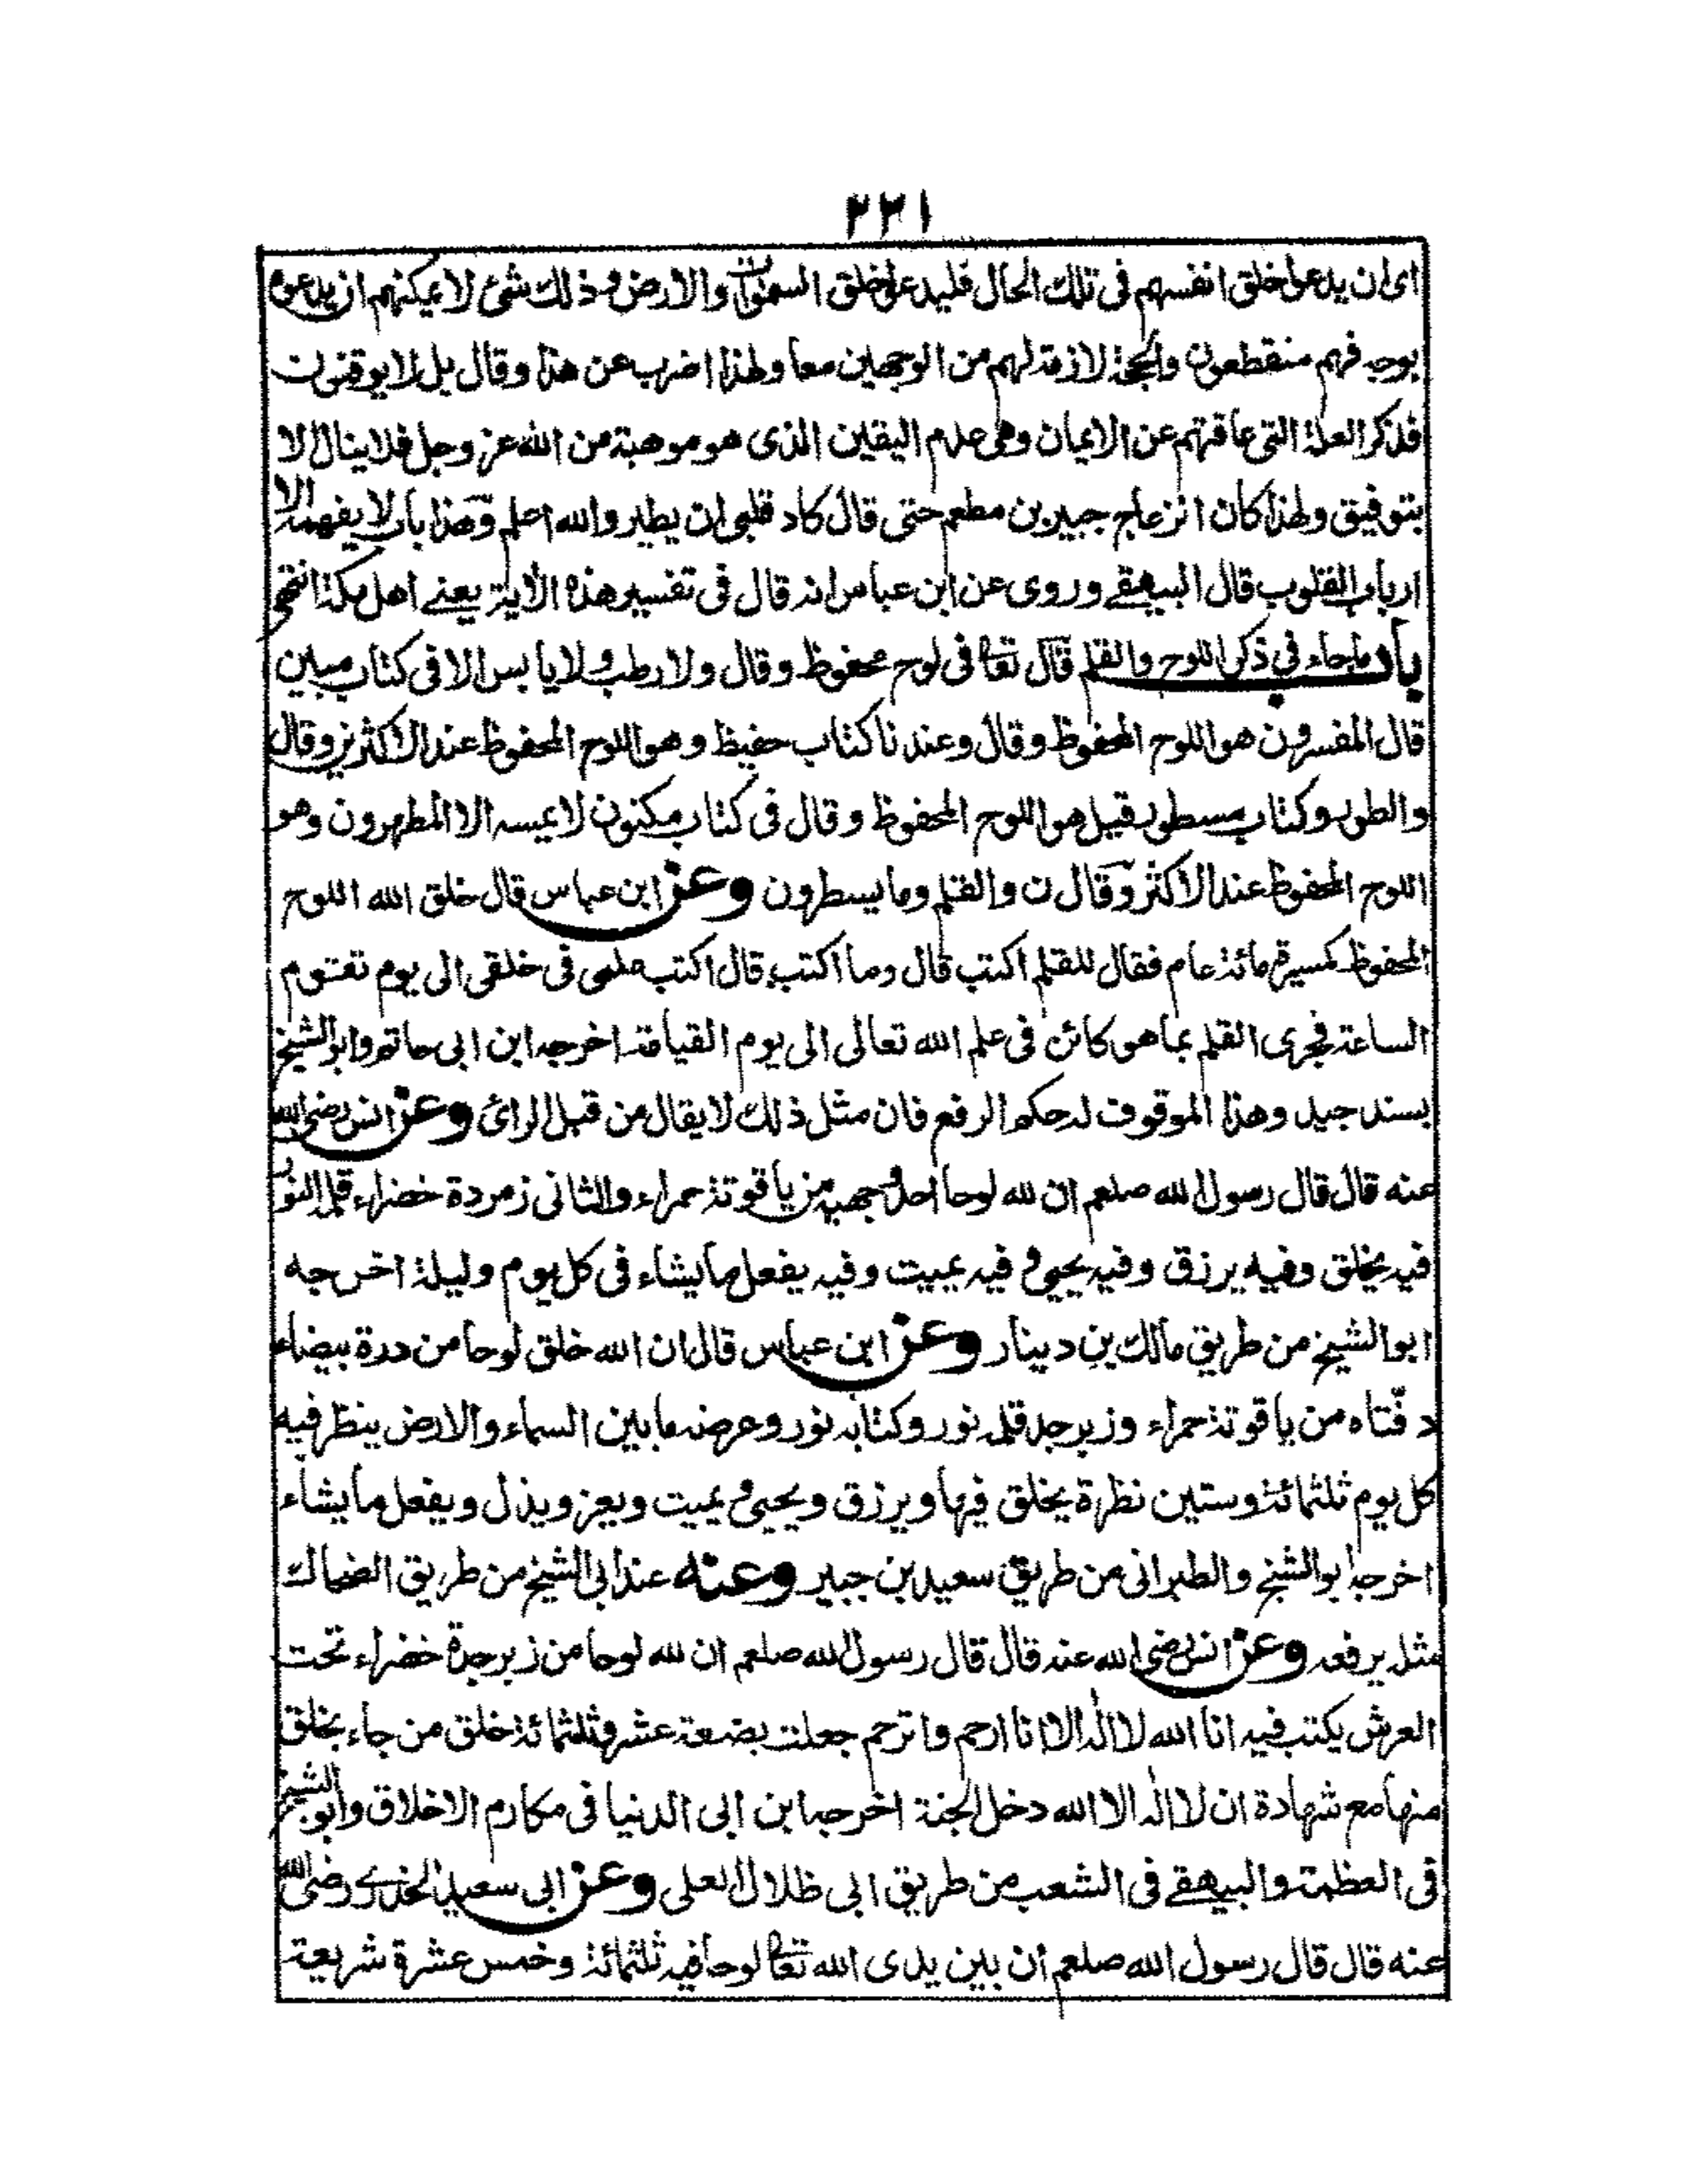 ٢٢١
اى ان يدعوا خلق انفسهم فى تلك الحال فليدعوا خلق السموات والارض وذلك شئ لا يمكنهم ان يدعوه
بوجه فهم منقطعون والحجة لازمة لهم من الوجهين معا ولهذا اضرب عن هذا وقال بل لا يوقنون
فذكر العلة التى عاقتهم عن الايمان وهى عدم اليقين الذى هو موهبة من الله عز وجل فلا ينال الا
بتوفيق ولهذا كان انزعاج جبير بن مطعم حتى قال كاد قلبى ان يطير والله اعلم وهذا باب لا يفهمه الا
ارباب القلوب قال البيهقے وروى عن ابن عباس انه قال فى تفسير هذه الأية يعنے اهل مكة انتهى
باب ما جاء في ذكر اللوح والقلم قال تعا فى لوح محفوظ وقال ولا رطب ولا يابس الا فى كتاب مبين
قال المفسرون هو اللوح المحفوظ وقال وعندنا كتاب حفيظ وهو اللوح المحفوظ عند الاكثرين وقال
والطور وكتاب مسطور قيل هو اللوح المحفوظ وقال فى كتاب مكنون لا يمسه الا المطهرون وهو
اللوح المحفوظ عند الاكثر وقال ن والقلم وما يسطرون وعن ابن عباس قال خلق الله اللوح
المحفوظ كمسيرة مائة عام فقال للقلم اكتب قال وما اكتب قال اكتب علمى فى خلقى الى يوم تقوم
الساعة فجرى القلم بما هو كائن فى علم الله تعالى الى يوم القيامة اخرجه ابن ابى حاتم وابو الشيخ
بسند جيد وهذا الموقوف له حكم الرفع فان مثل ذلك لا يقال من قبل الرائ وعن انس رضى الله
عنه قال قال رسول الله صلعم ان لله لوحا احد وجهيه من ياقوتة حمراء والثانى زمردة خضراء قلمه النور
فيه يخلق وفيه يرزق وفيه يحيي و فيه يميت وفيه يفعل ما يشاء فى كل يوم وليلة اخرجه
ابو الشيخ من طريق مالك بن دينار وعن ابن عباس قال ان الله خلق لوحا من درة بيضاء
دفتاه من ياقوتة حمراء وزبرجد قلمه نور وكتابه نور وعرضه ما بين السماء والارض ينظر فيه
كل يوم ثلثمائة وستين نظرة يخلق فيها ويرزق ويحيى و يميت ويعز ويذل ويفعل ما يشاء
اخرجه ابو الشيخ والطبرانى من طريق سعيد بن جبير وعنه عند ابى الشيخ من طريق الضحاك
مثله يرفعه وعن انس رضى الله عنه قال قال رسول الله صلعم ان لله لوحا من زبرجدة خضراء تحت
العرش يكتب فيه انا الله لا اله الا انا ارحم واترحم جعلت بضعة عشر وثلثمائة خلق من جاء بخلق
منها مع شهادة ان لا اله الا الله دخل الجنة اخرجه ابن ابى الدنيا فى مكارم الاخلاق وابو الشيخ
فى العظمة والبيهقے فى الشعب من طريق ابى ظلال العلى وعن ابى سعيد الخدرے رضى الله
عنه قال قال رسول الله صلعم ان بين يدى الله تعا لوحا فيه ثلثمائة وخمس عشرة شريعة